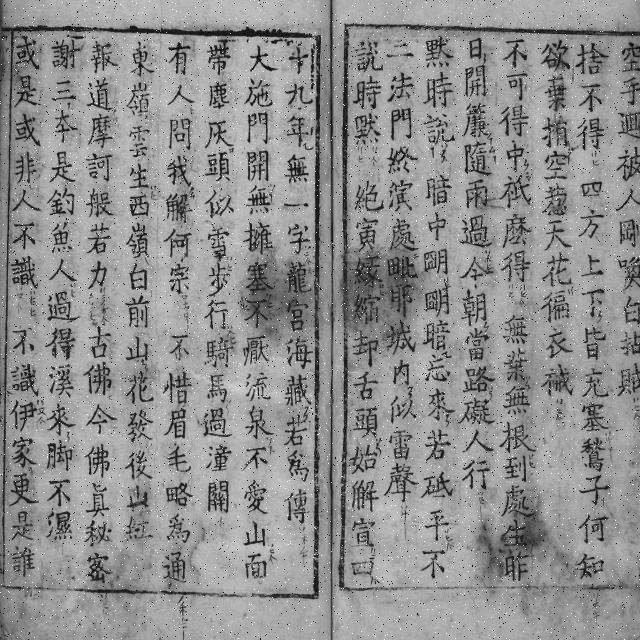 捨不得 四方上下皆充塞鶩子何知
欲棄捐空飜天花徧衣裓
不可得中祇麽得 無葉無根到處生
日開簾隨雨過今朝當路礙人行
默時說 暗中明明暗忘來若砥平不
二法門終演處毗耶城内似雷聲
說時默 絶寅緩縮却舌頭始解宣
十九年無一字龍宮海藏若爲傳
大施門開無擁塞不厭流泉不愛山面
帶塵灰頭似雪步行騎馬過潼關
有人問我解何宗 不惜眉毛略爲通
東嶺雲生西嶺白前山花發後山紅
報道摩訶般若力 古佛今佛眞秘密
謝三本是釣魚人過得溪來脚不濕
或是或非人不識 不識伊家更是誰